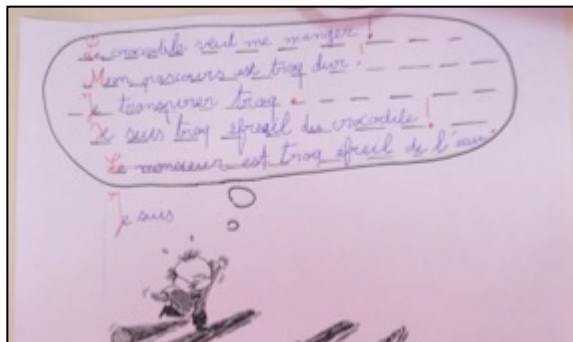 Le crocodile veut me manger !
Mon parcours est trop dur !
Je transpirer trop.
Je suis trop efreil du crocodile !
Le monsieur est trop efreil de l'eau.
Je suis